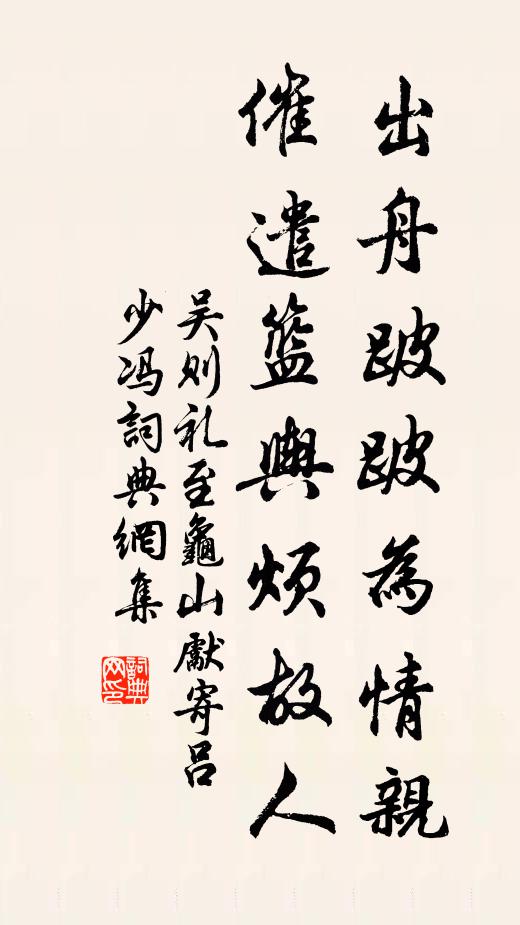 出舟跛跛為情親
催遣籃輿煩故人
吴则礼至龜山獻寄吕
少冯詞典網集
詞典
网印